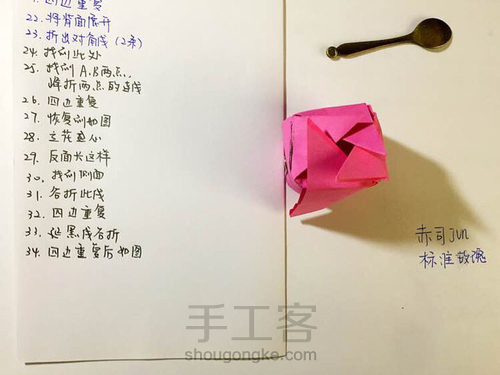 四边重复
22. 将背面展开
23. 折出对角线（2条）
24. 找到此处
25. 找到 A,B两点,
峰折两点的连线
26. 四边重复
27. 恢复到如图
28. 立花蕊心
29. 反面长这样
30. 找到侧面
31. 各折此线
32. 四边重复
33. 延黑线谷折
34. 四边重复后如图
赤司jun
标准玫瑰
手工客
shougongke.com